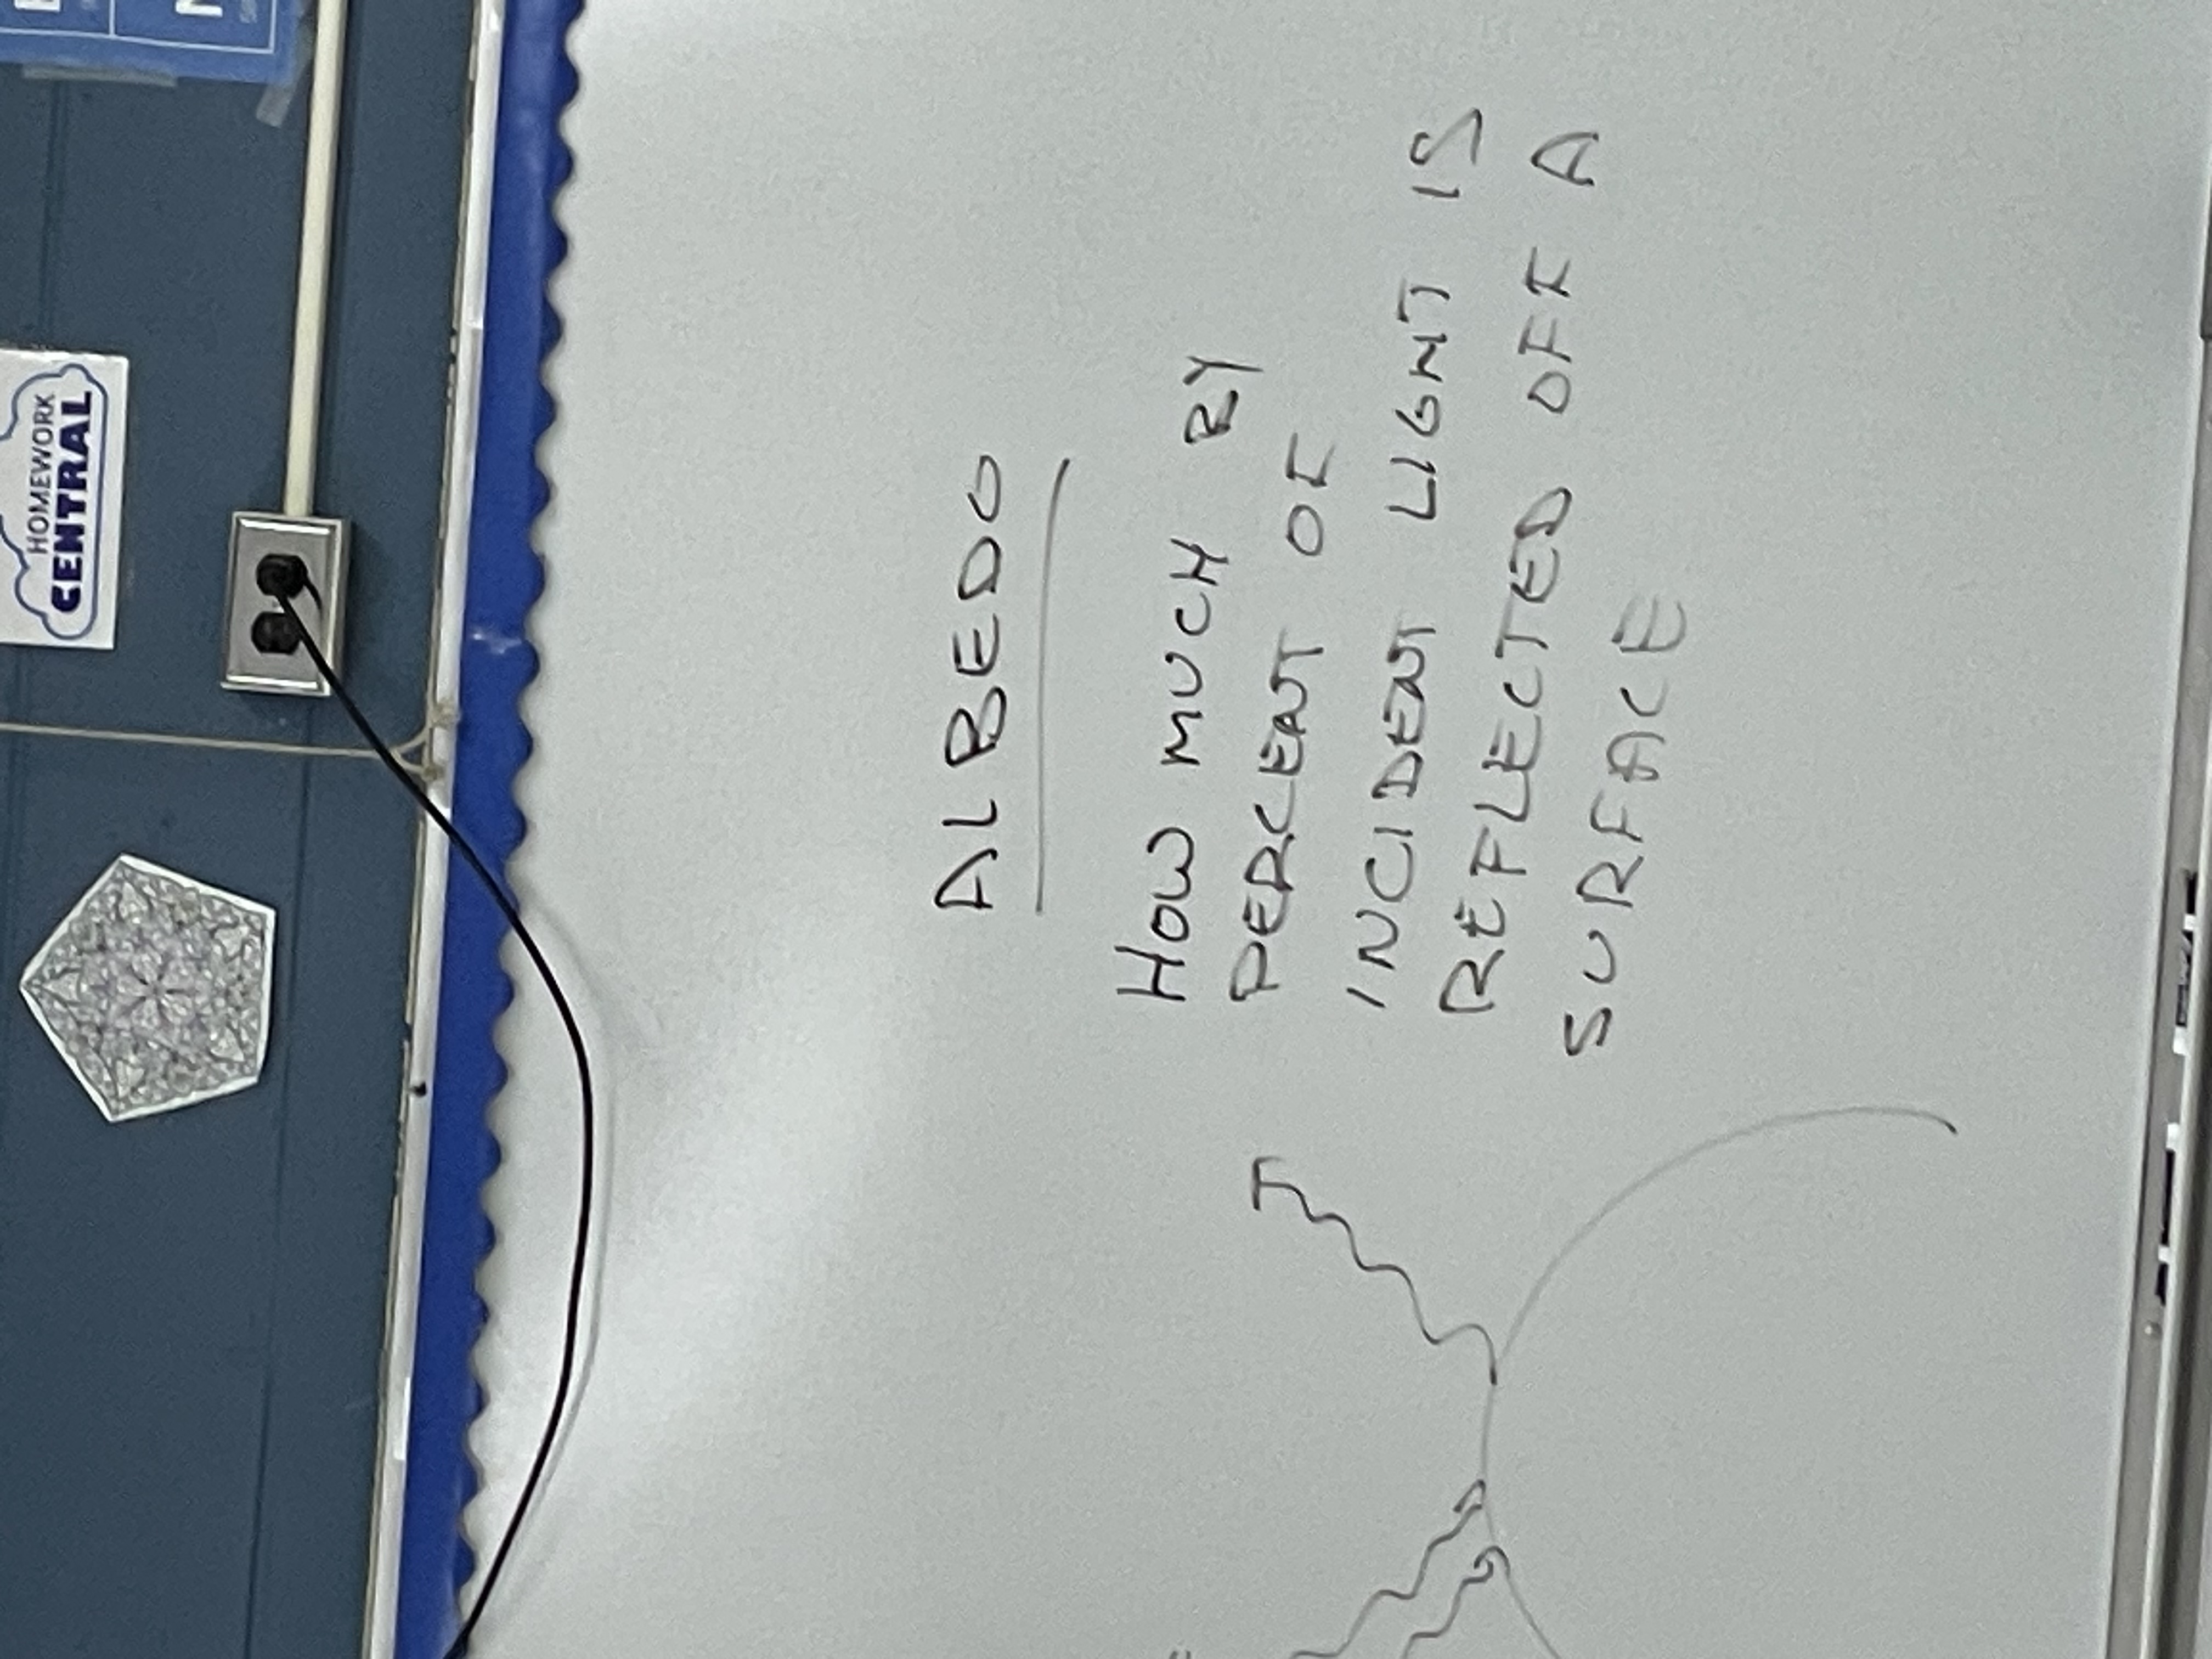 HOMEWORK
CENTRAL
ALBEDO
HOW MUCH BY
PERCENT OF
INCIDENT LIGHT IS
REFLECTED OFF A
SURFACE